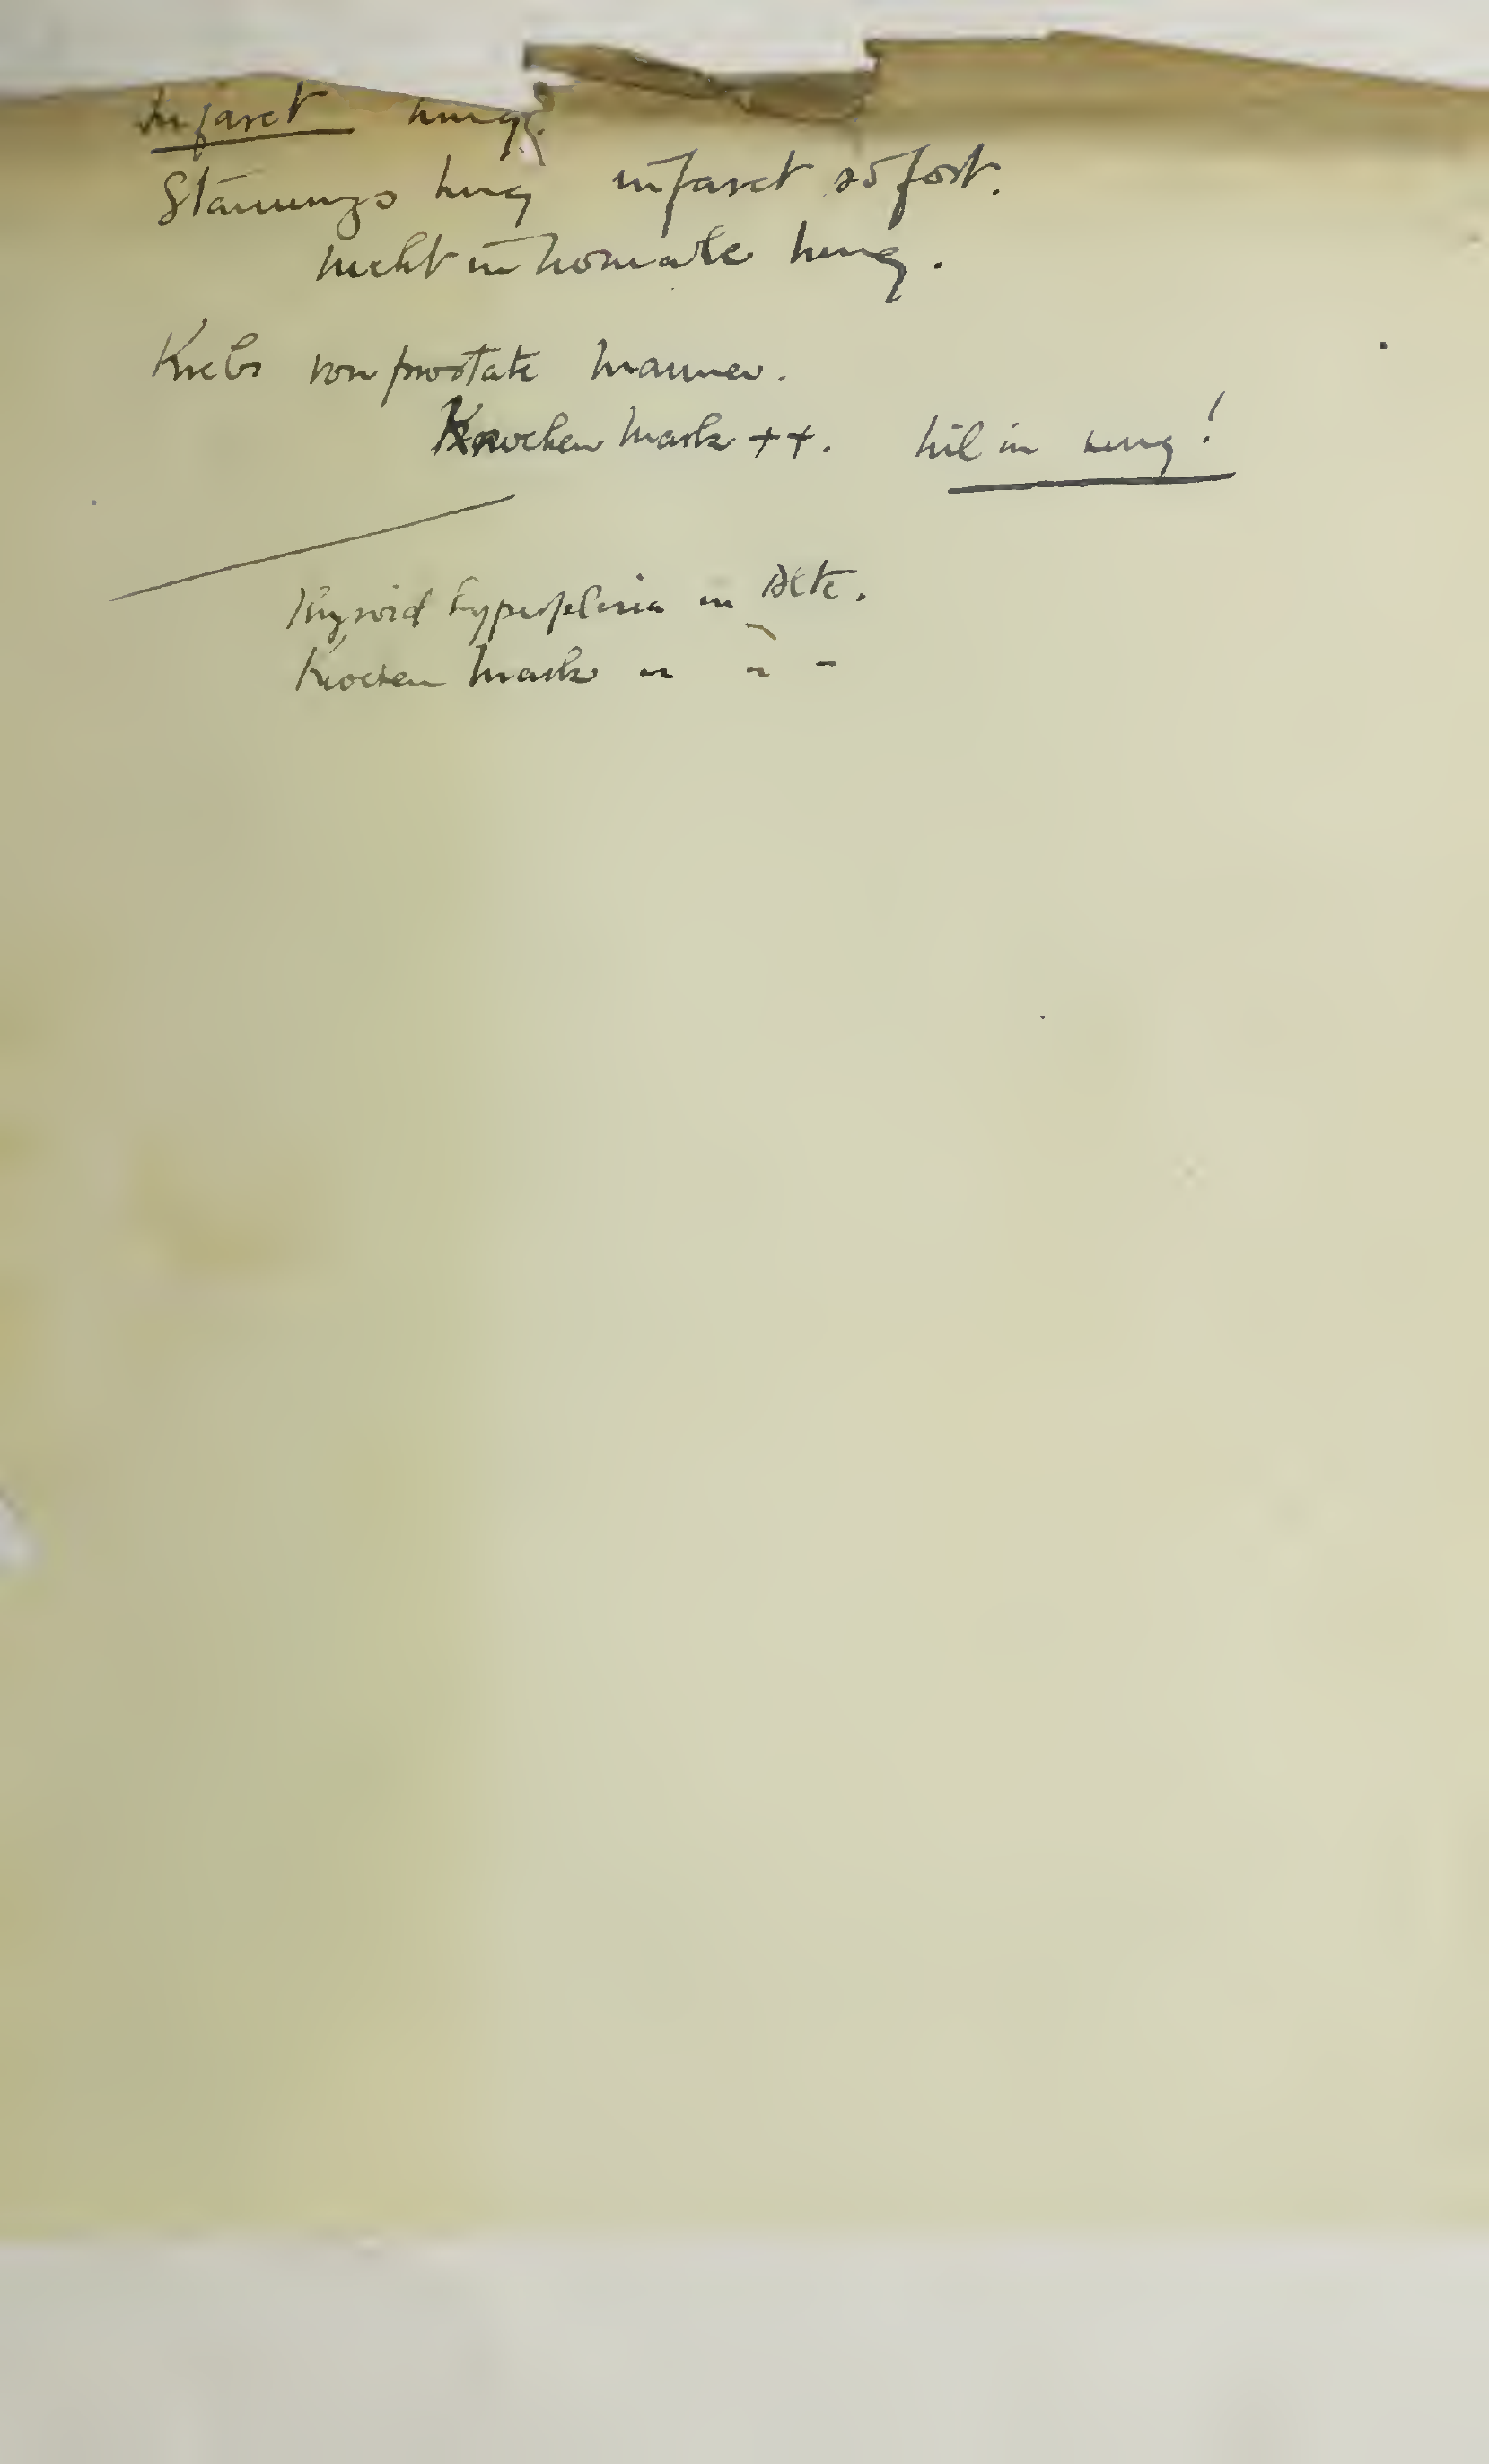 Infarct lung?
Stauungs lung infarct sofort.
nicht in normale lung.
Krebs von prostate manner.
Knochen mark ++. nil in lung!
Thyroid hyperplasia in Alte.
Knochen mark " " -